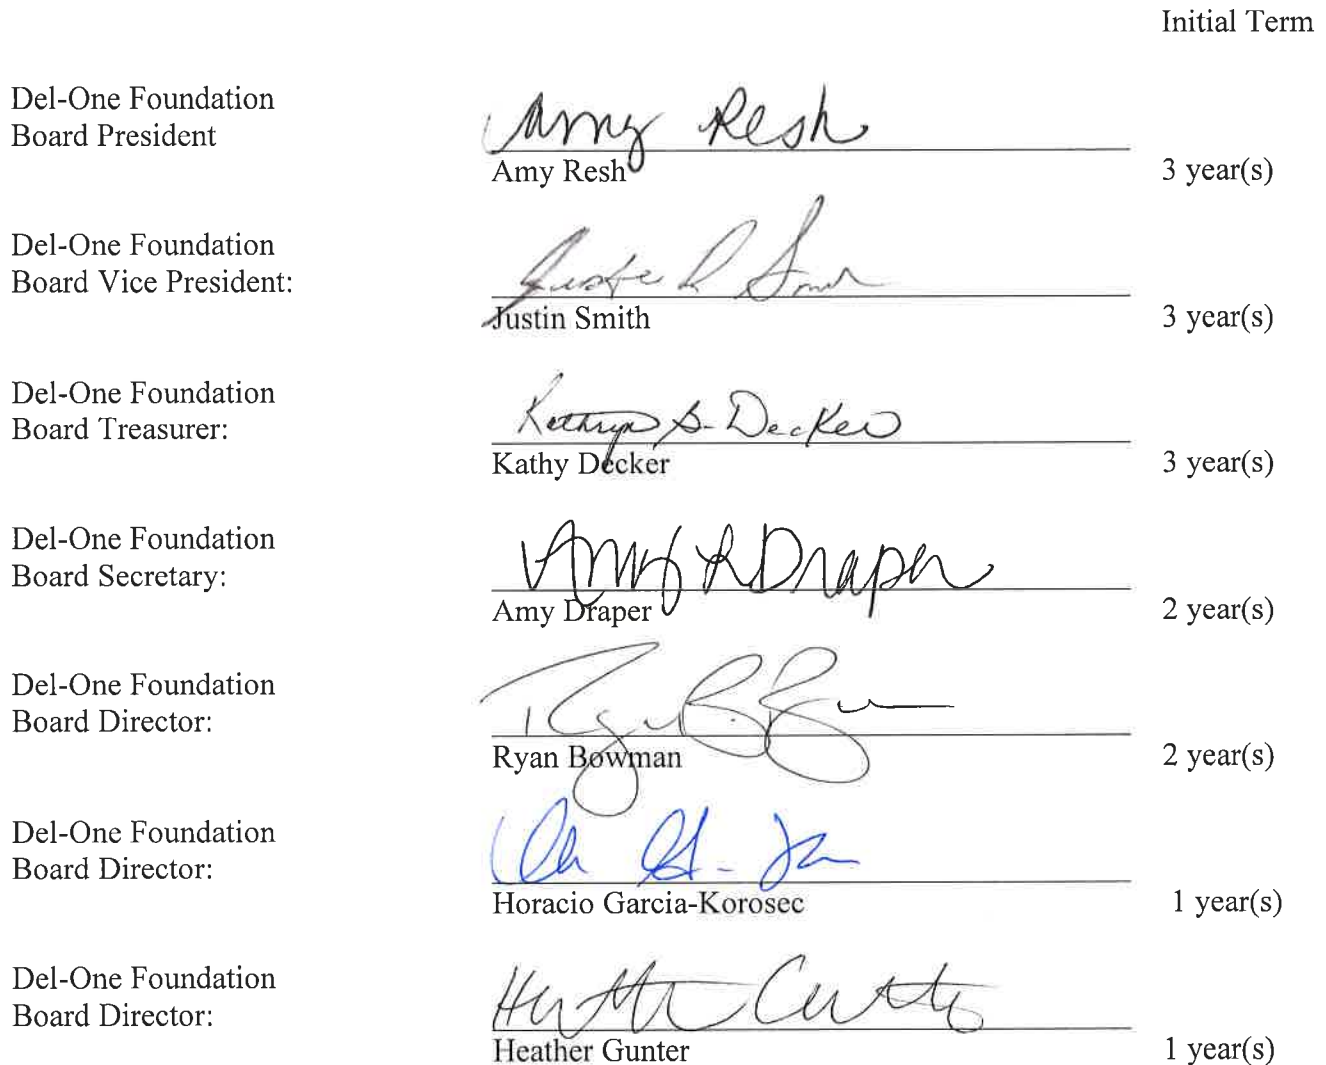 Initial Term
Del-One Foundation
Board President
Amy Resh
Amy Resh
3 year(s)
Del-One Foundation
Board Vice President:
Justin Smith
3 year(s)
Del-One Foundation
Board Treasurer:
Kathryn S. Decker
Kathy Decker
3 year(s)
Del-One Foundation
Board Secretary:
Amy R Draper
Amy Draper
2 year(s)
Del-One Foundation
Board Director:
Ryan Bowman
2 year(s)
Del-One Foundation
Board Director:
Horacio Garcia-Korosec
1 year(s)
Del-One Foundation
Board Director:
Heather Gunter
1 year(s)